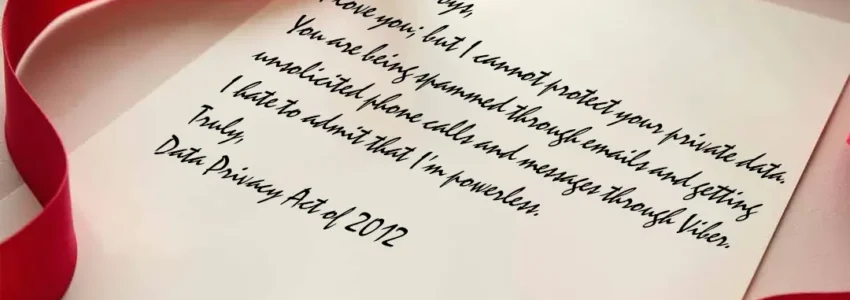 I love you; but I cannot protect your private data.
You are being spammed through emails and getting
unsolicited phone calls and messages through Viber.
I hate to admit that I'm powerless.
Truly,
Data Privacy Act of 2012